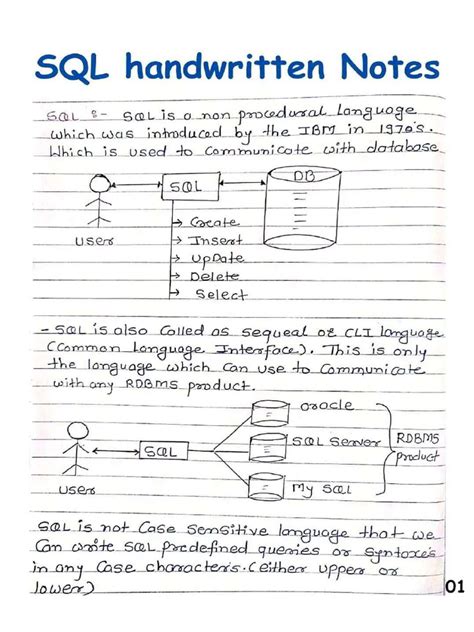 SQL handwritten Notes
SQL :- SQL is a non procedural Language
which was introduced by the IBM in 1970's.
Which is used to communicate with database
User
SQL
DB
→ Create
→ Insert
→ UpDate
→ Delete
→ Select
- SQL is also Called as sequeal or CLI language
(Common Language Interface). This is only
the language which can use to Communicate
with any RDBMS product.
User
SQL
oracle
SQL Server
My SQL
RDBMS
product
SQL is not Case Sensitive language that we
Can write SQL predefined queries or Syntaxes
in any Case characters. (either upper or
lower)
01